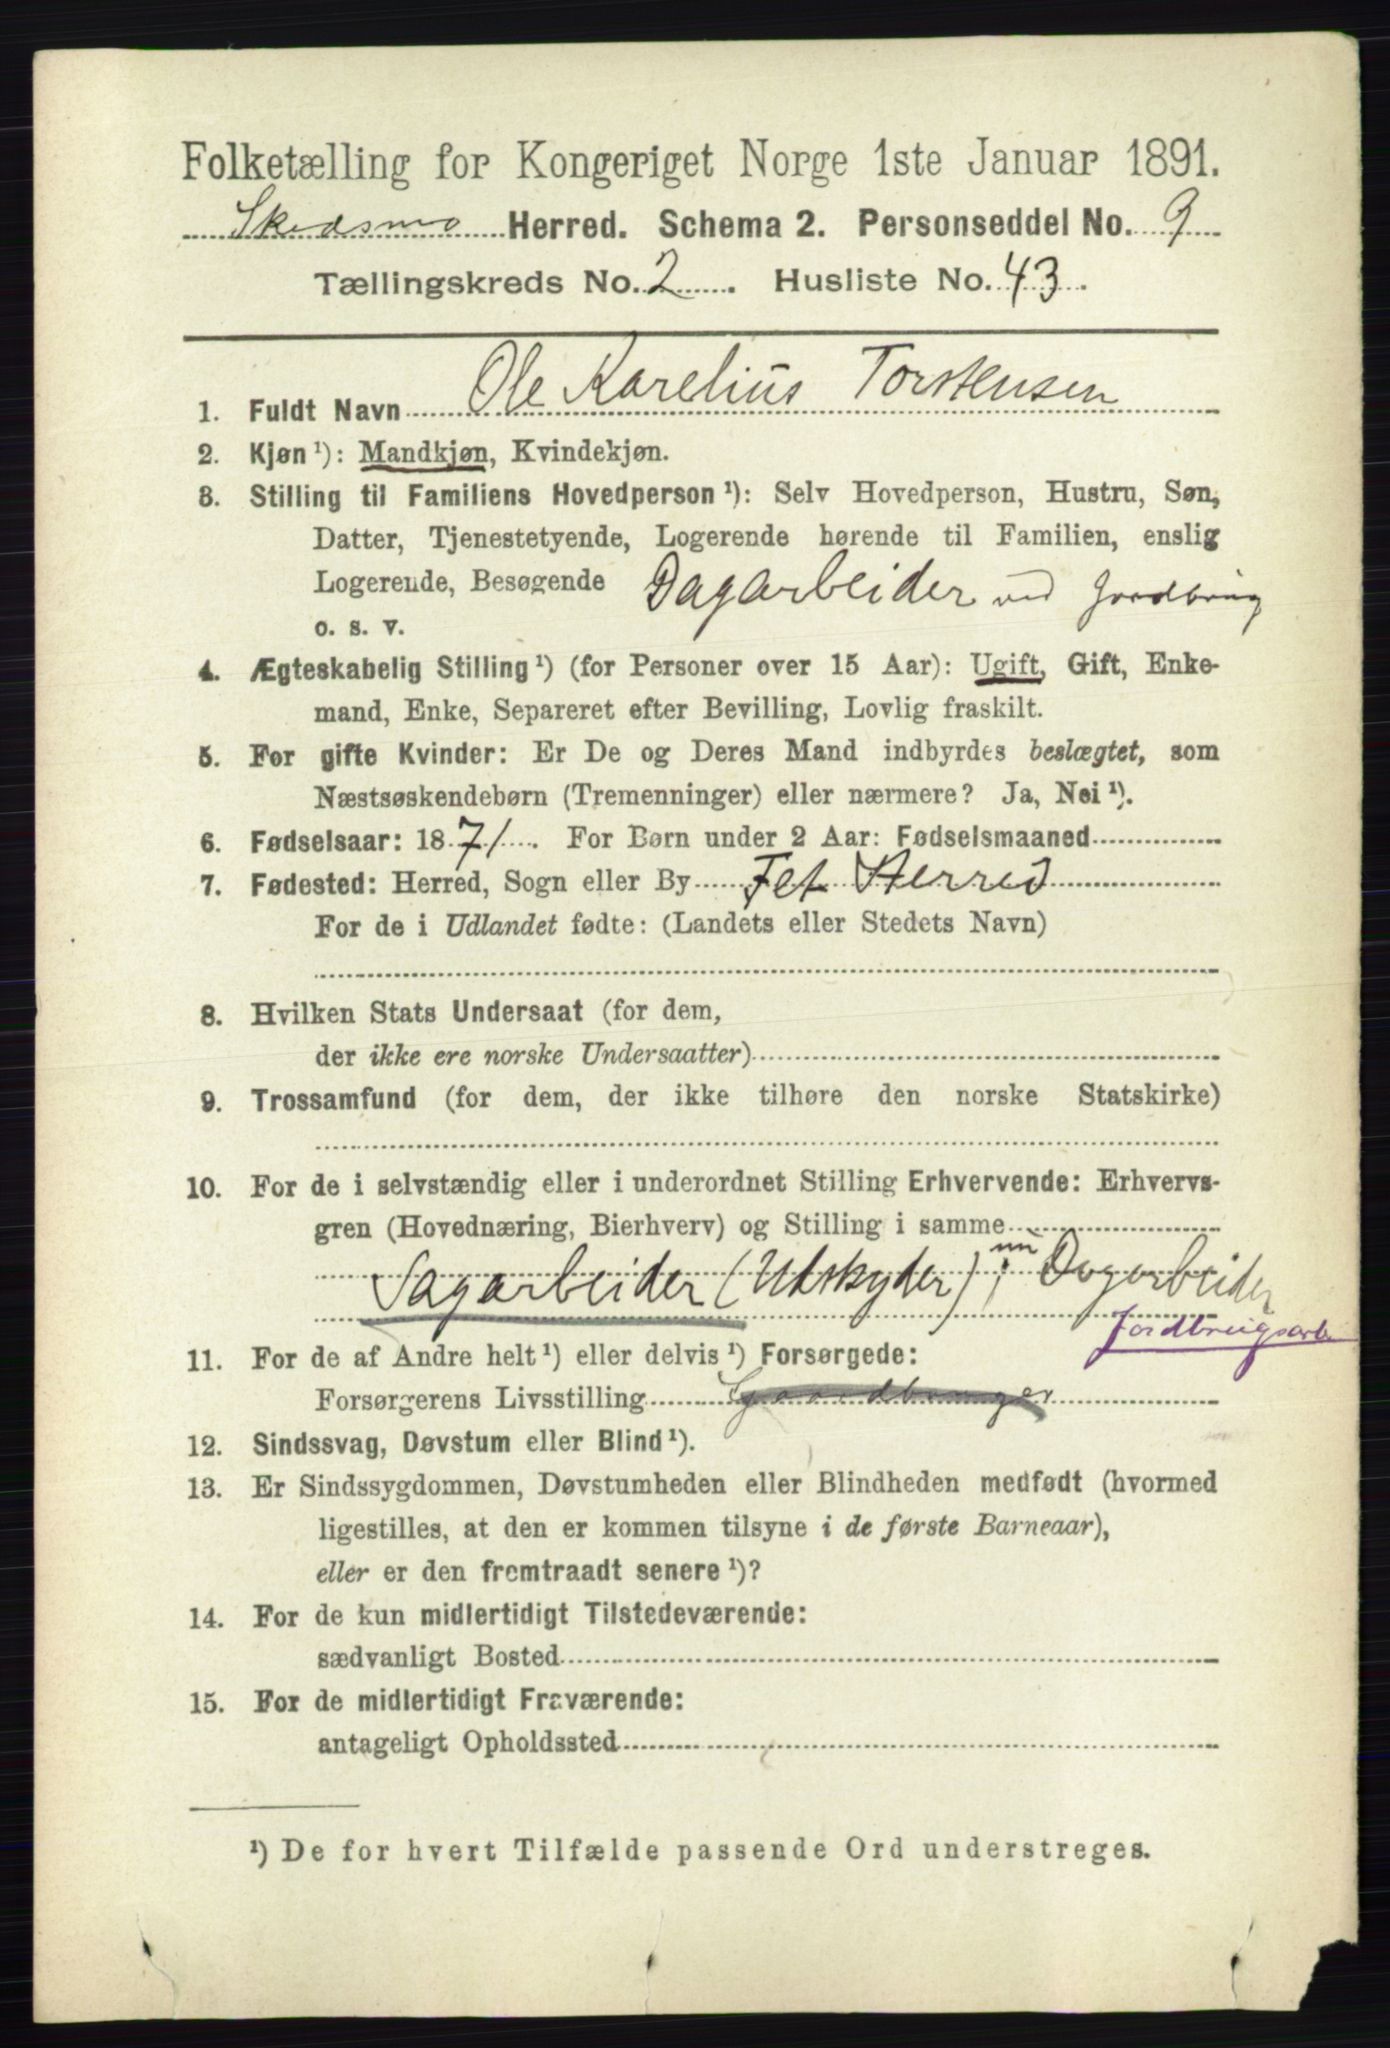 Folketælling for Kongeriget Norge 1ste Januar 1891.
Skedsmo Herred. Schema 2. Personseddel No. 9
Tællingskreds No. 2. Husliste No. 43.
1. Fuldt Navn Ole Karelius Torstensen
2. Kjøn ¹): Mandkjøn, Kvindekjøn.
3. Stilling til Familiens Hovedperson ¹): Selv Hovedperson, Hustru, Søn,
Datter, Tjenestetyende, Logerende hørende til Familien, enslig
Logerende, Besøgende Dagarbeider ved Jordbrug
o. s. v.
4. Ægteskabelig Stilling ¹) (for Personer over 15 Aar): Ugift, Gift, Enke-
mand, Enke, Separeret efter Bevilling, Lovlig fraskilt.
5. For gifte Kvinder: Er De og Deres Mand indbyrdes beslægtet, som
Næstsøskendebørn (Tremenninger) eller nærmere? Ja, Nei ¹).
6. Fødselsaar: 1871. For Børn under 2 Aar: Fødselsmaaned
7. Fødested: Herred, Sogn eller By Fet Herred
For de i Udlandet fødte: (Landets eller Stedets Navn)
8. Hvilken Stats Undersaat (for dem,
der ikke ere norske Undersaatter)
9. Trossamfund (for dem, der ikke tilhøre den norske Statskirke)
10. For de i selvstændig eller i underordnet Stilling Erhvervende: Erhvervs-
gren (Hovednæring, Bierhverv) og Stilling i samme
Sagarbeider (Udskyder); nu Dagarbeider
Jordbrugsarb
11. For de af Andre helt ¹) eller delvis ¹) Forsørgede:
Forsørgerens Livsstilling
12. Sindssvag, Døvstum eller Blind ¹).
13. Er Sindssygdommen, Døvstumheden eller Blindheden medfødt (hvormed
ligestilles, at den er kommen tilsyne i de første Barneaar),
eller er den fremtraadt senere ¹)?
14. For de kun midlertidigt Tilstedeværende:
sædvanligt Bosted
15. For de midlertidigt Fraværende:
antageligt Opholdssted
¹) De for hvert Tilfælde passende Ord understreges.